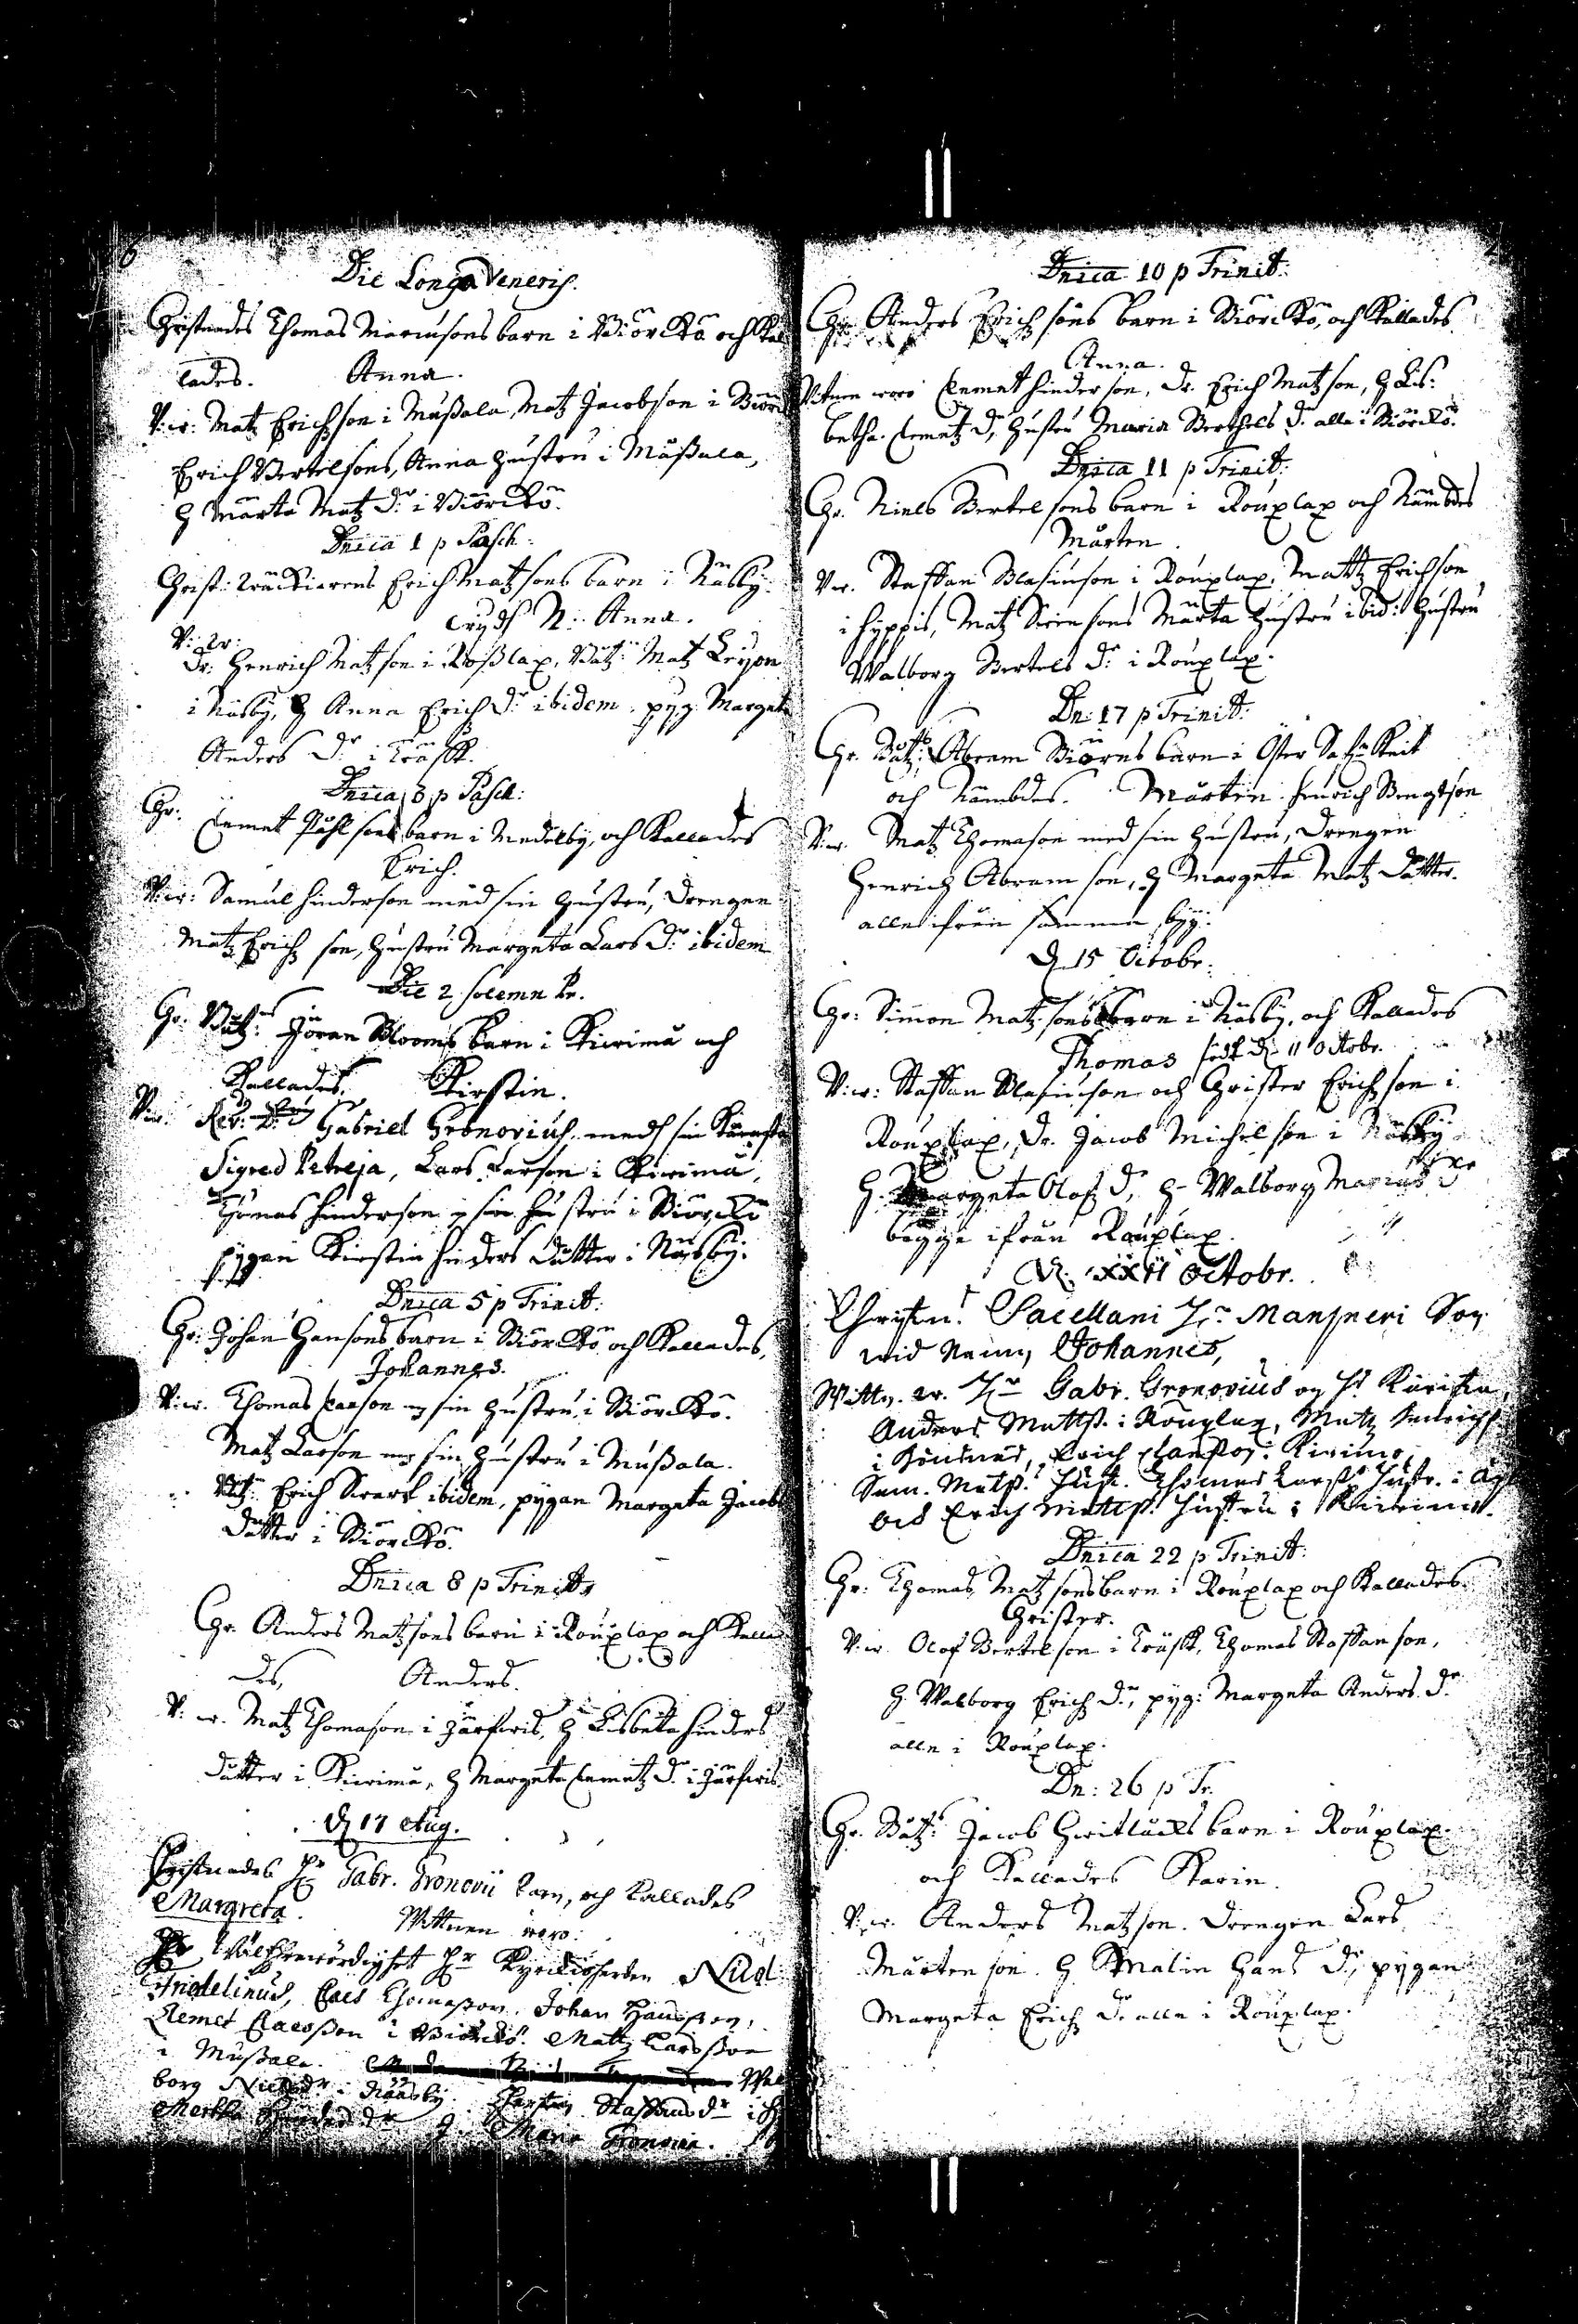 6
Die Longa Veneris.
Christnades Thomas Mariusons barn i Biörckö och kal
lades. Anna.
V: w: Matz Erichson i Mußala, Matz Jacobson i Biörc
Erich Bertelsons, Anna hustru i Mußala,
H Märta Matz dr i Biörckö.
Dnica 1 p Pasch:
Christ: Erich Matzsons barn i Näsby
Anna.
V: w:
Dr: Henrich Matzson i Roßlax, Båtz: Matz Leyon
i Näsby, H Anna Erich dr ibidem, pyg Margeta
Anders dr i Träsk.
Dnica 3 p Pasch:
Chr: Clemet Påhlsons barn i Medelby, och kallades
Erich.
V: w: Samul Hinderson med sin hustru, drengen
Matz Erichson, hustru Margeta Lars dr ibidem
Die 2 solemn
Chr. Båtz: Jöran Blooms barn i Kirima och
kallades, Kirstin.
V: w: Rev: Dn Gabriel Gronovius med sin kärasta
Sigred Petreja, Lars Larson i Kirima,
Thomas Hinderson sin hustru i Biörckö
pygan Kirstin Hinders dåtter i Näsby.
Dnica 5 p Trinit:
Chr: Johan Hansons barn i Biörckö och kallades,
Johannes.
V: w. Thomas Larson sin hustru i Biörckö.
Matz Larson sin hustru i Mußala.
Båtz: Erich Swart ibidem, pygan Margeta Jacobs
dåtter i Biörckö.
Dnica 8 p Trinit,
Chr. Anders Matzsons barn i Rouxlax och kalla
des, Anders.
V: w. Matz Thomason i Järfwis, H Lisbetta Hinders
dåtter i Kirima, H Margeta Clemetz dr i Järfwis
D 17 Aug.
Christnades Hr Gabr. Gronovii barn, och kallades
Margreta. Wittnen woro:
Wälehrewördighet Hr Kyrckioherden Nicol:
Fridelinus, Claes Thomaßon, Johan Hanßon,
Clemet Claesson i Biörckö. Mattz Larsson
i Mußala. Wal
borg Niels dr i Näsby. Kerstin Staffans dr i
Hinders dr Maria Gronovia.
Dnica 10 p Trinit:
Chr Anders Erichsons barn i Biörckö, och kallades
Anna.
Witnen woro Clemet Hinderson, Dr. Erich Matzson, H Lis:
betha Clemetz d, hustru Maria Berthels dr alla i Biörckö.
Dnica 11 p Trinit:
Chr. Niels Bertelsons barn i Rouxlax och nämbdes
Mårten.
V: w. Staffan Blasiuson i Rouxlax, Mattz Erichson
i Hyppis, Matz Simonsons Märta hustru ibid: hustru
Walborg Bertels dr i Rouxlax.
Dn: 17 p Trinit:
Chr. Båtz: Abram Biörns barn i Öster
och nämbdes. Mårten. Henrich Bengtson
V: w. Matz Thomason med sin hustru, drengen
Henrich Abramson, H Margeta Matz dåtter.
alle ifrån samma by:
D 15 Octobr:
Chr: Simon Matzsons barn i Näsby, och kallades
Thomas född d 11 Octobr.
V: w: Staffan Blasiuson och Christer Erichson i
Rouxlax, Dr. Jacob Michelson i Näsby
H. Margeta Olofz dr, H Walborg Marius dr
begge ifrån Rouxlax.
D. XXII Octobr.
Christn: Sacellani Hr Son
wid namn Johannes,
Wittn. w. Hr Gabr. Gronovius Karitin,
Anders Mattß. i Rouxlax, Matz Henrichß.
i Erich Claeßon i Kirimo,
Sam. Matß. Hust. Thomas Larß Hustr. i
och Erich Mattß. Hustru i Kirimo.
Dnica 22 p Trinit:
Chr: Thomas Matzsons barn i Rouxlax och kallades
Christer.
V: w. Olof Bertelson i Träsk, Thomas Staffanson,
H. Walborg Erich dr, pyg: Margeta Anders dr
alle i Rouxlax.
Dn: 26 p Tr.
Chr. Båtz: Jacob Hwitlåcks barn i Rouxlax.
och kallades Karin.
V: w. Anders Matzson. drengen Lars
Mårtenson. H Malin Hans dr, pygan
Margeta Erich dr alle i Rouxlax.